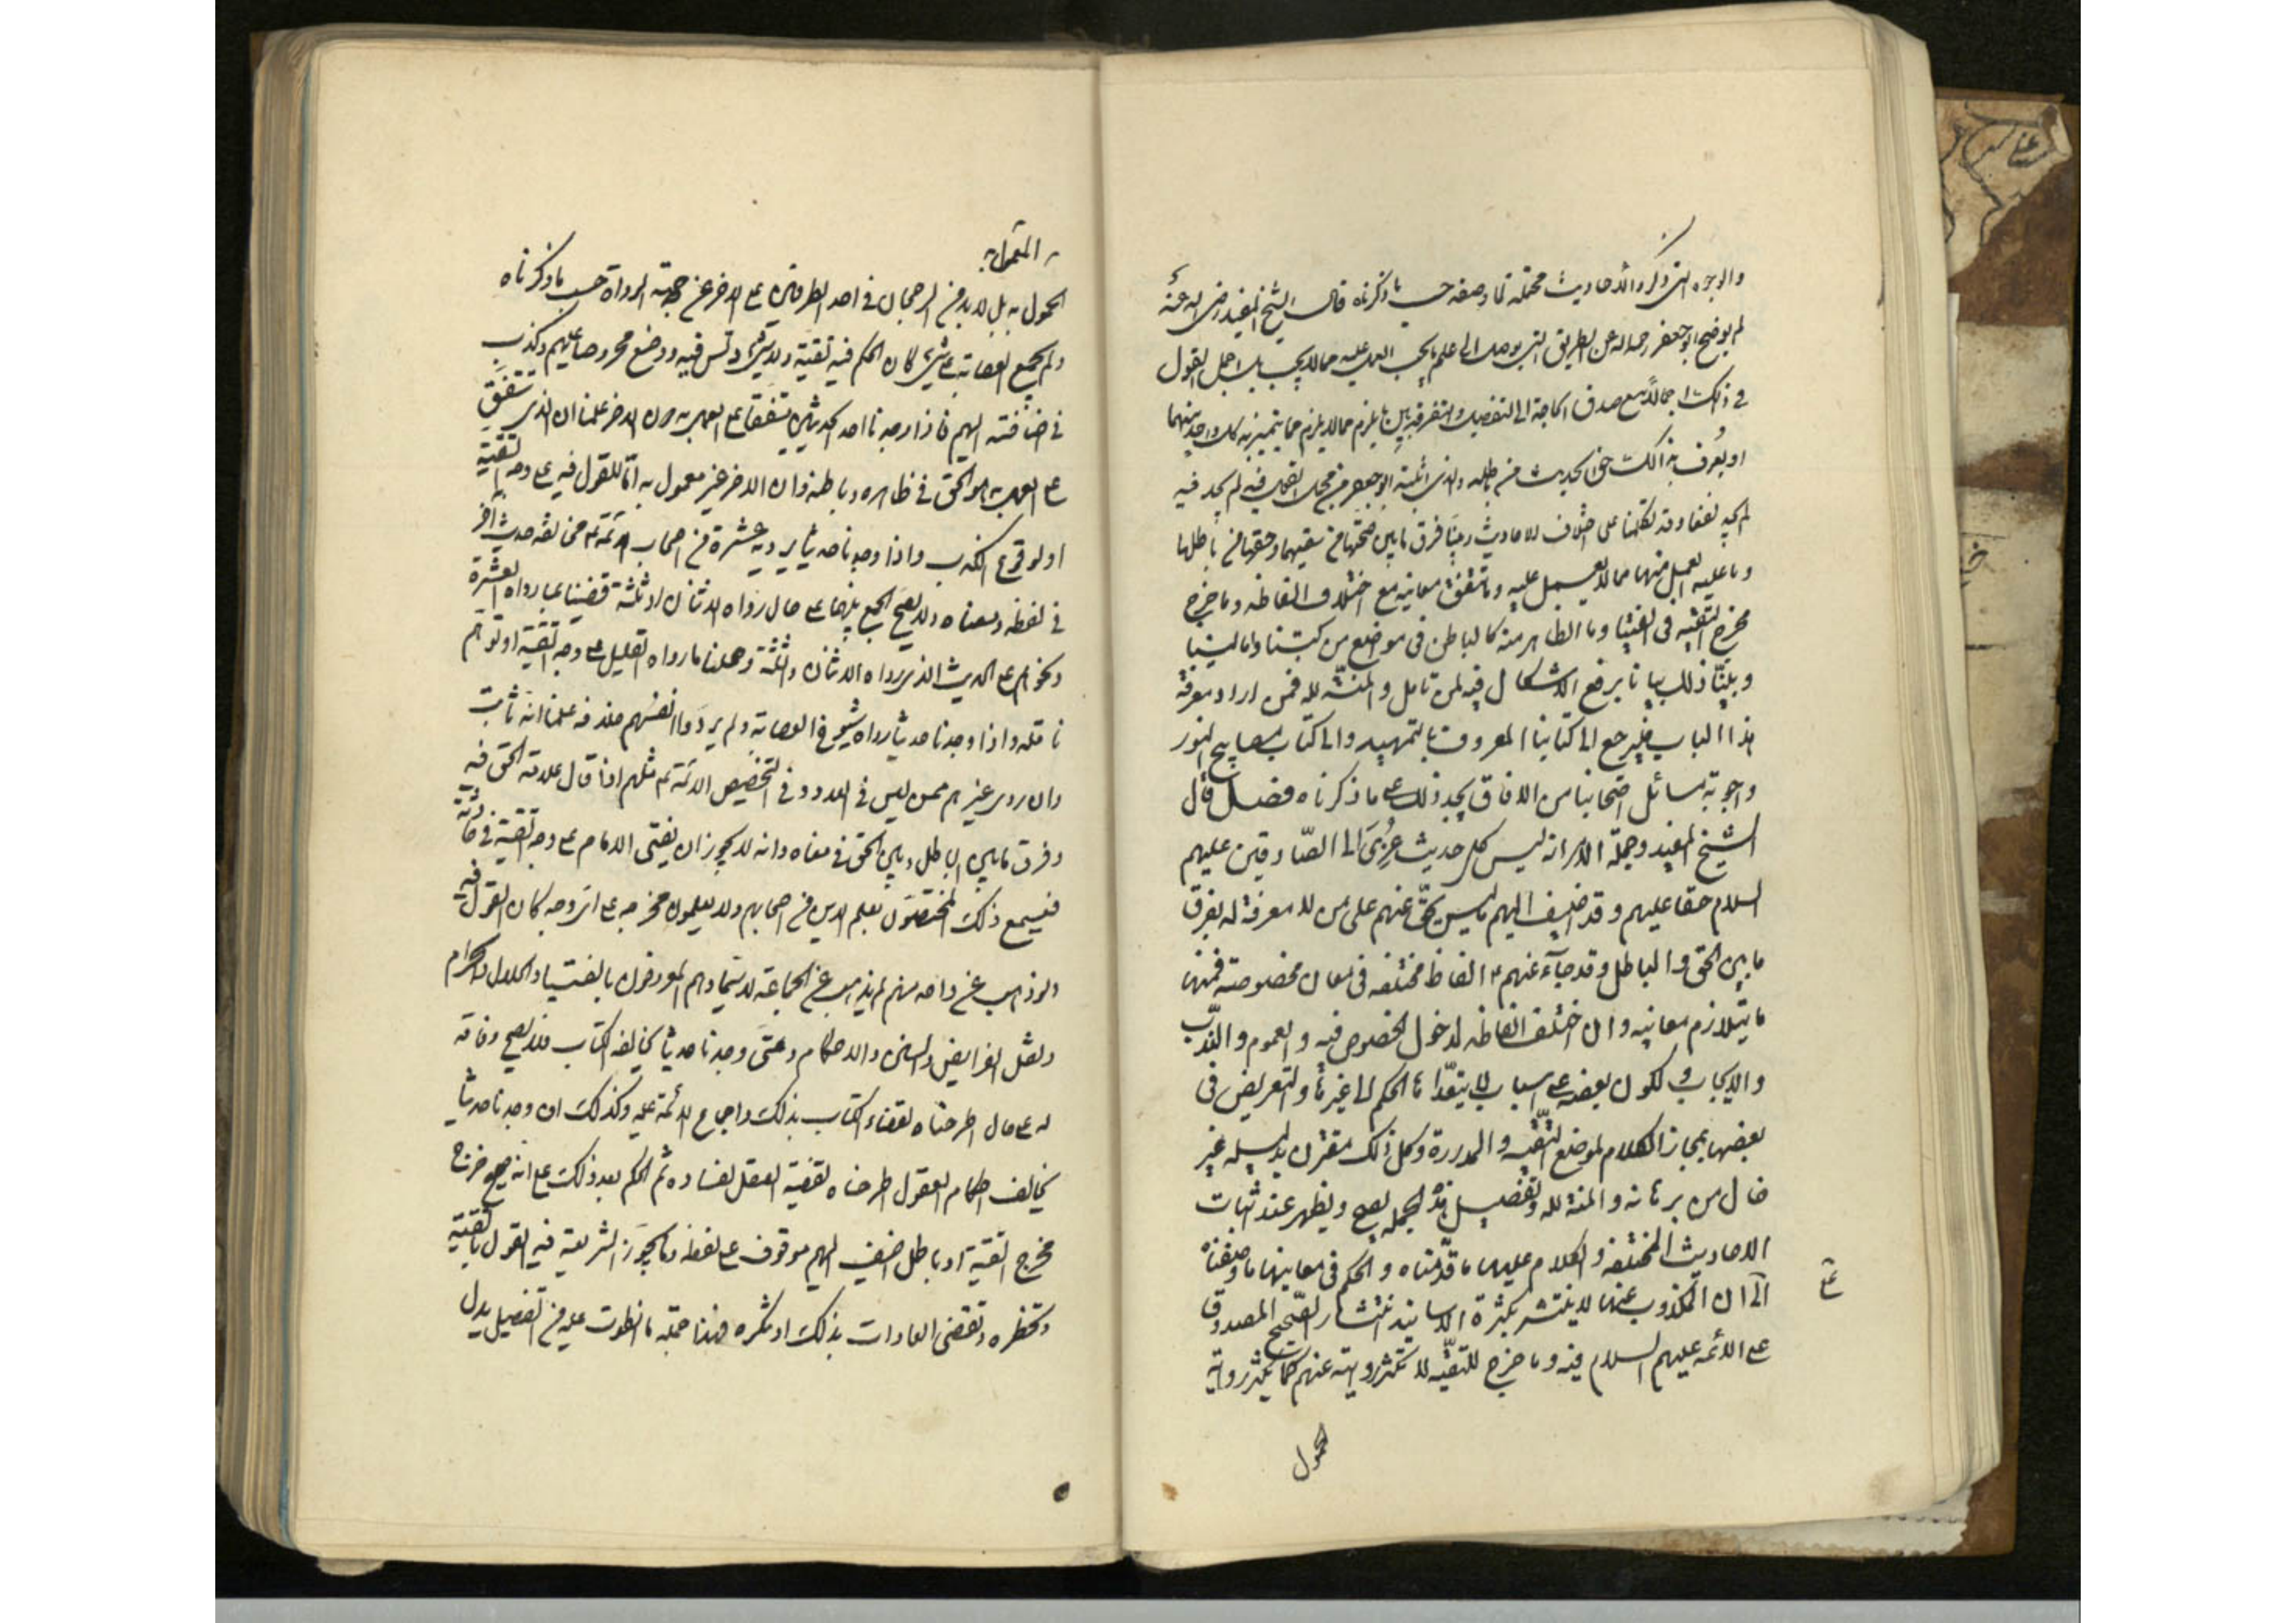 والوجوه التي ذكروا الأحاديث محتملة لما وصفه حسب ما ذكرناه قال الشيخ المفيد رضي الله عنه
لم يوضح ابوجعفر رحمه الله عن الطريق التي يوصل الى علم ما يجب العمل عليه مما لا يجب بل اجمل القول
في ذلك اجمالا مع صدق الحاجة الى التفصيل والتفرقة بين ما يلزم مما لا يلزم بما يتميز به كل واحد منهما
او يعرف بذلك حق الحديث من باطله والذي اثبته ابو جعفر من مجمل القول فيه لم يجد فيه
لم يجد نفعا وقد تكلمنا على اختلاف الاحاديث وبينا فرق ما بين صحتها من سقيمها وحقها من باطلها
وما عليه العمل منها مما لا يعمل عليه وما تتفق معانيه مع اختلاف الفاظه وما خرج
مخرج التقيه في الفتيا وما الظاهر منه كالباطن في مواضع من كتبنا وامالينا
وبينا ذلك بيانا يرفع الاشكال فيه لمن تامل والمنة لله فمن اراد معرفة
هذا الباب فليرجع الى كتابنا المعروف بالتمهيد والى كتاب مصابيح النور
واجوبة مسائل اصحابنا من الافاق يجد ذلك على ما ذكرناه فصل قال
الشيخ المفيد وجملة الامر انه ليس كل حديث عزي الى الصادقين عليهم
السلام حقا عليهم وقد اضيف اليهم ما ليس بحق عنهم على من لا معرفة له بفرق
ما بين الحق والباطل وقد جاء عنهم ع الفاظ مختلفه في معان مخصوصة فمنها
ما يتلازم معانيه وان اختلف الفاظه لدخول الخصوص فيه والعموم والندب
والايجاب ولكون بعضه على اسباب لا يتعداها الحكم الى غيرها والتعريض في
بعضها بمجاز الكلام لموضع التقيه والمداراة وكل ذلك مقترن بدليله غير
خال من برهانه والمنة لله وتفصيل هذه الجمله يصح ويظهر عند اثبات
الاحاديث المختلفه والكلام عليها ما قدمناه والحكم في معانيها ما وصفناه
الا ان المكذوب عنها لا ينتشر بكثرة الاسانيد انتشار الصحيح المصدوق
على الائمه عليهم السلام فيه وما خرج للتقيه لا تكثر روايته عنهم كما تكثر رواية
المعمول
المعمول به
المعمول به بل لا بد من الرجحان في احد الطرفين على الاخر من جهة الرواة حسب ما ذكرناه
ولم تجمع العصابة على شيء كان الحكم فيه تقية ولا شيء دلس فيه ووضع مخروصا عليهم وكذب
في اضافته اليهم فاذا وجدنا احد الحديثين متفقا على العمل به دون الاخر علمنا ان الذي اتفق
على العمل به هو الحق في ظاهره وباطنه وان الاخر غير معمول به اما للقول فيه على وجه التقية
او لوقوع الكذب واذا وجدنا حديثا يرويه عشرة من اصحاب الائمة ع مخالفه حديث آخر
في لفظه ومعناه ولا يصح الجمع بينهما على حال رواه الاثنان او ثلثة قضينا بما رواه العشرة
ونحوهم على الحديث الذي رواه الاثنان والثلثة وحملنا ما رواه القليل على وجه التقية او توهم
ناقله واذا وجدنا حديثا رواه شيوخ العصابة ولم يردوا انفسهم خلافه علمنا انه ثابت
وان روى غيرهم ممن ليس في العدد وفي التخصيص الائمة ع مثلهم اذا قال علامة الحق فيه
وفرق ما بين الباطل وبين الحق في معناه وانه لا يجوز ان يفتي الامام على وجه التقية في حادثة
فيسمع ذلك المختصون بعلم الدين من اصحابهم ولا يعلمون مخرجه على اي وجه كان القول فيه
ولو ذهب عن واحد منهم لم يذهب عن الجماعة لا سيما وهم المعروفون بالفتيا والحلال والحرام
ونقل الفرايض والسنن والاحكام ومتى وجدنا حديثا يخالفه الكتاب فلا يصح وفاقه
له على حال اطرحناه لقضاء الكتاب بذلك واجماع الائمة عليه وكذلك ان وجدنا حديثا
يخالف احكام العقول اطرحناه لقضية العقل بفساده ثم الحكم بعد ذلك على انه صحيح خرج
مخرج التقية او باطل اضيف اليهم موقوف على لفظه وما تجوز الشريعة فيه القول بالتقية
وتحظره وتقضي العادات بذلك او تنكره فهذا جملة ما انطوت عليه من التفصيل يدل